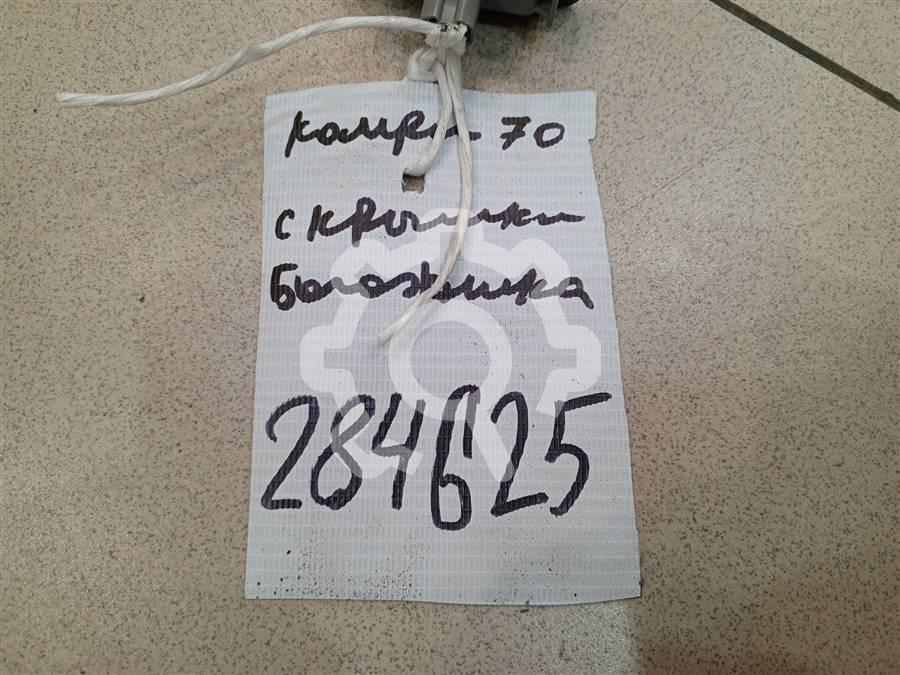 камри 70
с крышки
Багажника
284625